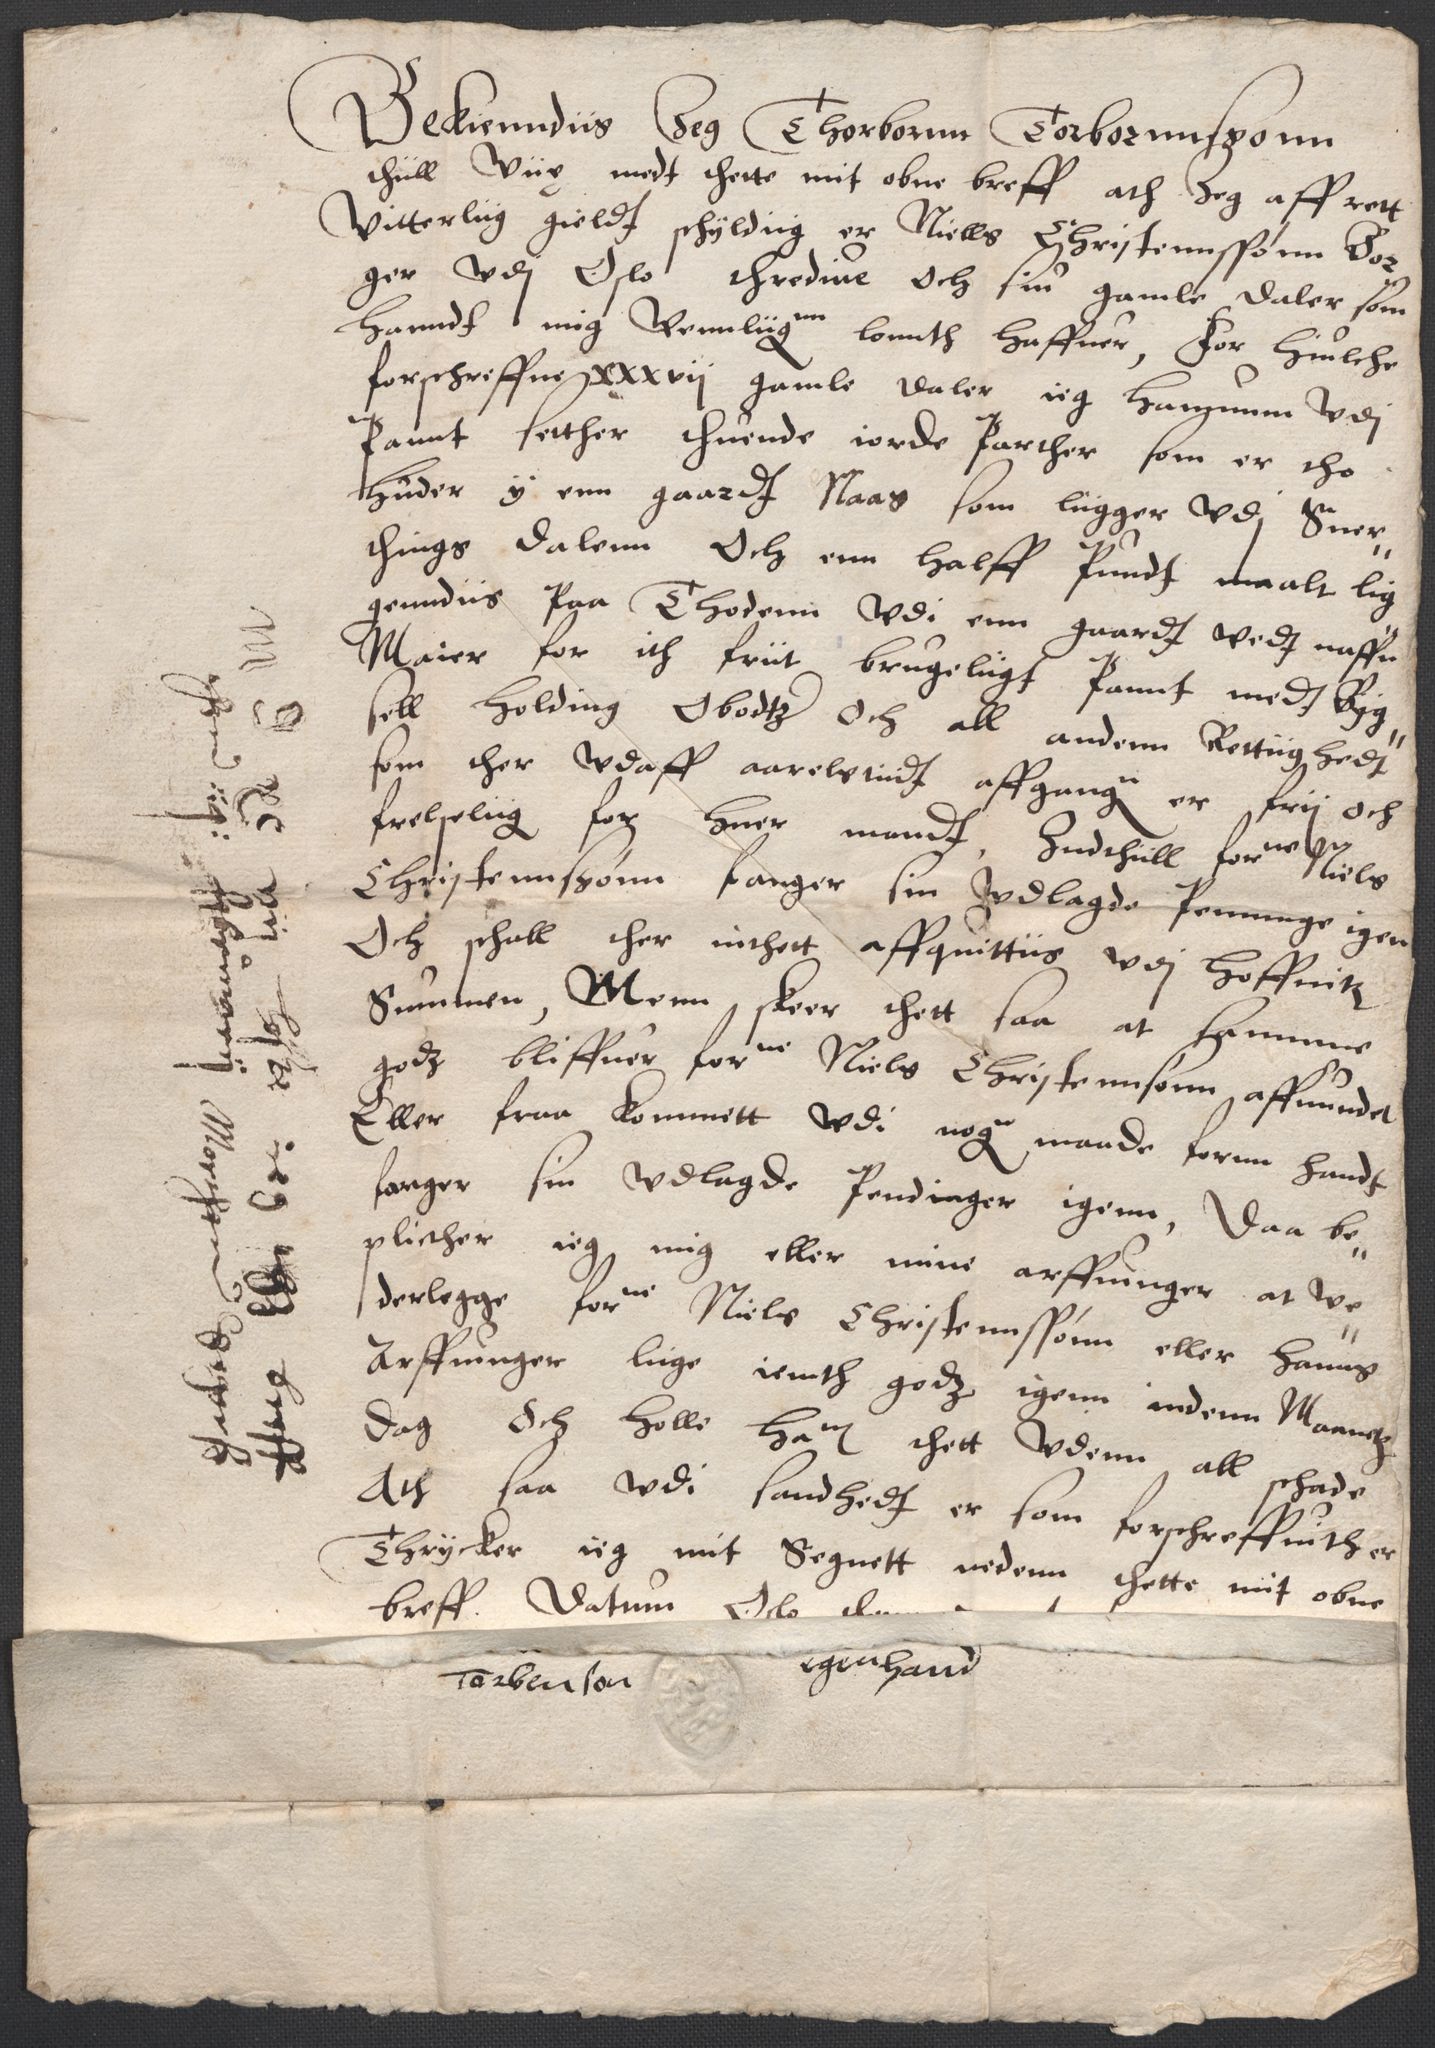 Bekienndiis Jeg Thorbornn Torbornnszonn
thiill Viig medt thette mit obne breff ath Jeg aff rett
Vitterliig gieldt schyldiig er Niells Christennssønn Bor
ger vdj Oslo thrediue och siu gamle daler som
handt mig Vennliigenn lonnth haffuer, For huilche
forschreffne xxxvij gamle daler ieg hannum vdj
Pannt setther thuende iorde Parther som er tho
huder y enn gaardt Naas som liigger vdj Suer
things dalenn Och enn halff Pundt maalt lig
genndiis Paa Thodenn vdi enn gaardt vedt naffn
Maier for ith friit brugeligt Pannt medt Byg
sell holding Obodtz och all andenn Rettiighedt
som ther vdaff aarels tiidt affgangen er frij och
frelseliig for huer mandt, Indthiill forne Niels
Christennszønn fanger sin vdlagde Penninge igen
Och schall ther inthett affquittiis vdj hoffuitz
Summen, Menn skeer thett saa at samme
godz bliffuer forne Niels Christennsønn affuundet
Eller fraa kommett vdi nogen maade fornn handt
fanger sin vdlagde Pendinger igenn, Daa be
plicther ieg mig eller mine arffuinger at ve
derlegge forne Niels Christennssønn eller hanns
Arffuinger liige iemth godz igenn indenn Maanetz
dag Och holle ham thett vdenn all schade
Ath saa vdi sandhedt er som forschreffuith er
Thrycker ieg mit Segnett nedenn thette mit obne
breff. Datum Oslo
Torbenson egenhand